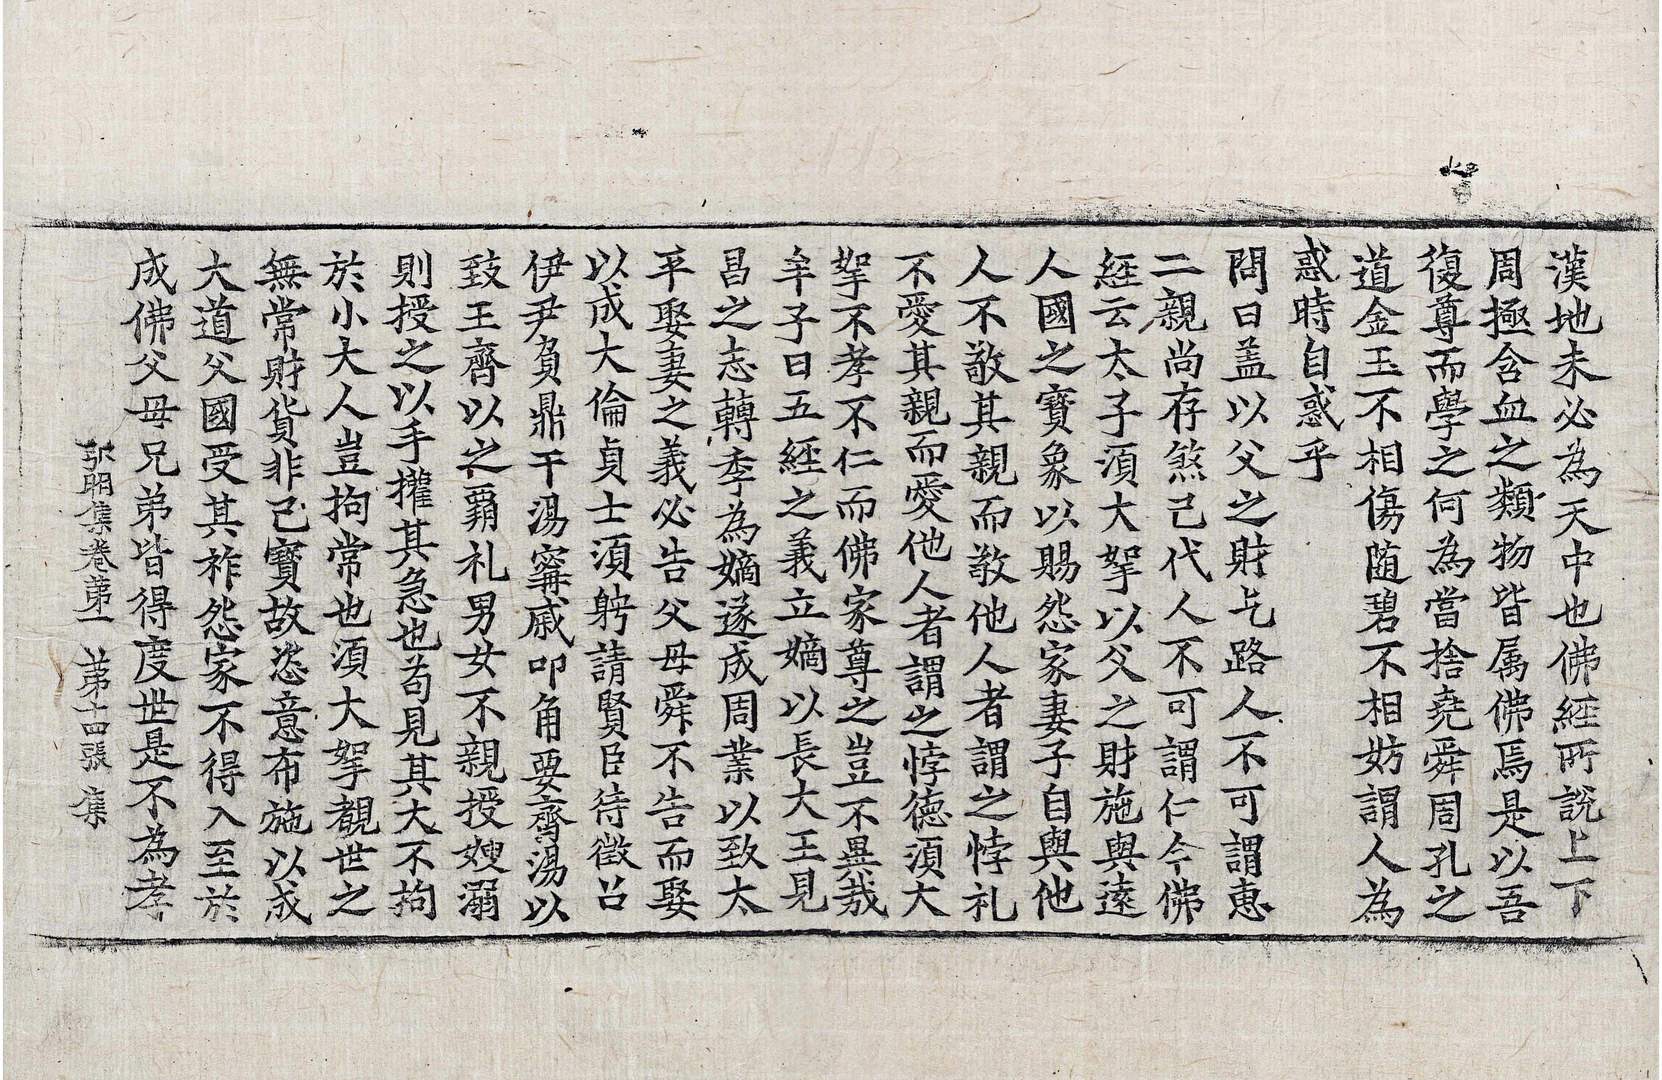 漢地未必為天中也佛經所說上下
周極含血之類物皆属佛焉是以吾
復尊而學之何為當捨堯舜周孔之
道金玉不相傷随碧不相妨謂人為
惑時自惑乎
問曰盖以父之財乞路人不可謂惠
二親尚存煞己代人不可謂仁今佛
経云太子湏大拏以父之財施與遠
人國之寳象以賜怨家妻子自與他
人不敬其親而敬他人者謂之悖礼
不愛其親而愛他人者謂之悖德湏大
拏不孝不仁而佛家尊之豈不異哉
牟子曰五經之義立嫡以長大王見
昌之志轉季為嫡遂成周業以致太
平娶妻之義必告父母舜不告而娶
以成大倫貞士湏聘請賢臣待徵召
伊尹負鼎干湯寗戚叩角要齊湯以
致王齊以之覇礼男女不親授嫂溺
則授之以手權其急也苟見其大不拘
於小大人豈拘常也湏大拏覩世之
無常財貨非己寳故恣意布施以成
大道父國受其祚怨家不得入至於
成佛父母兄弟皆得度世是不為孝
弘明集卷苐一　苐十四張　集